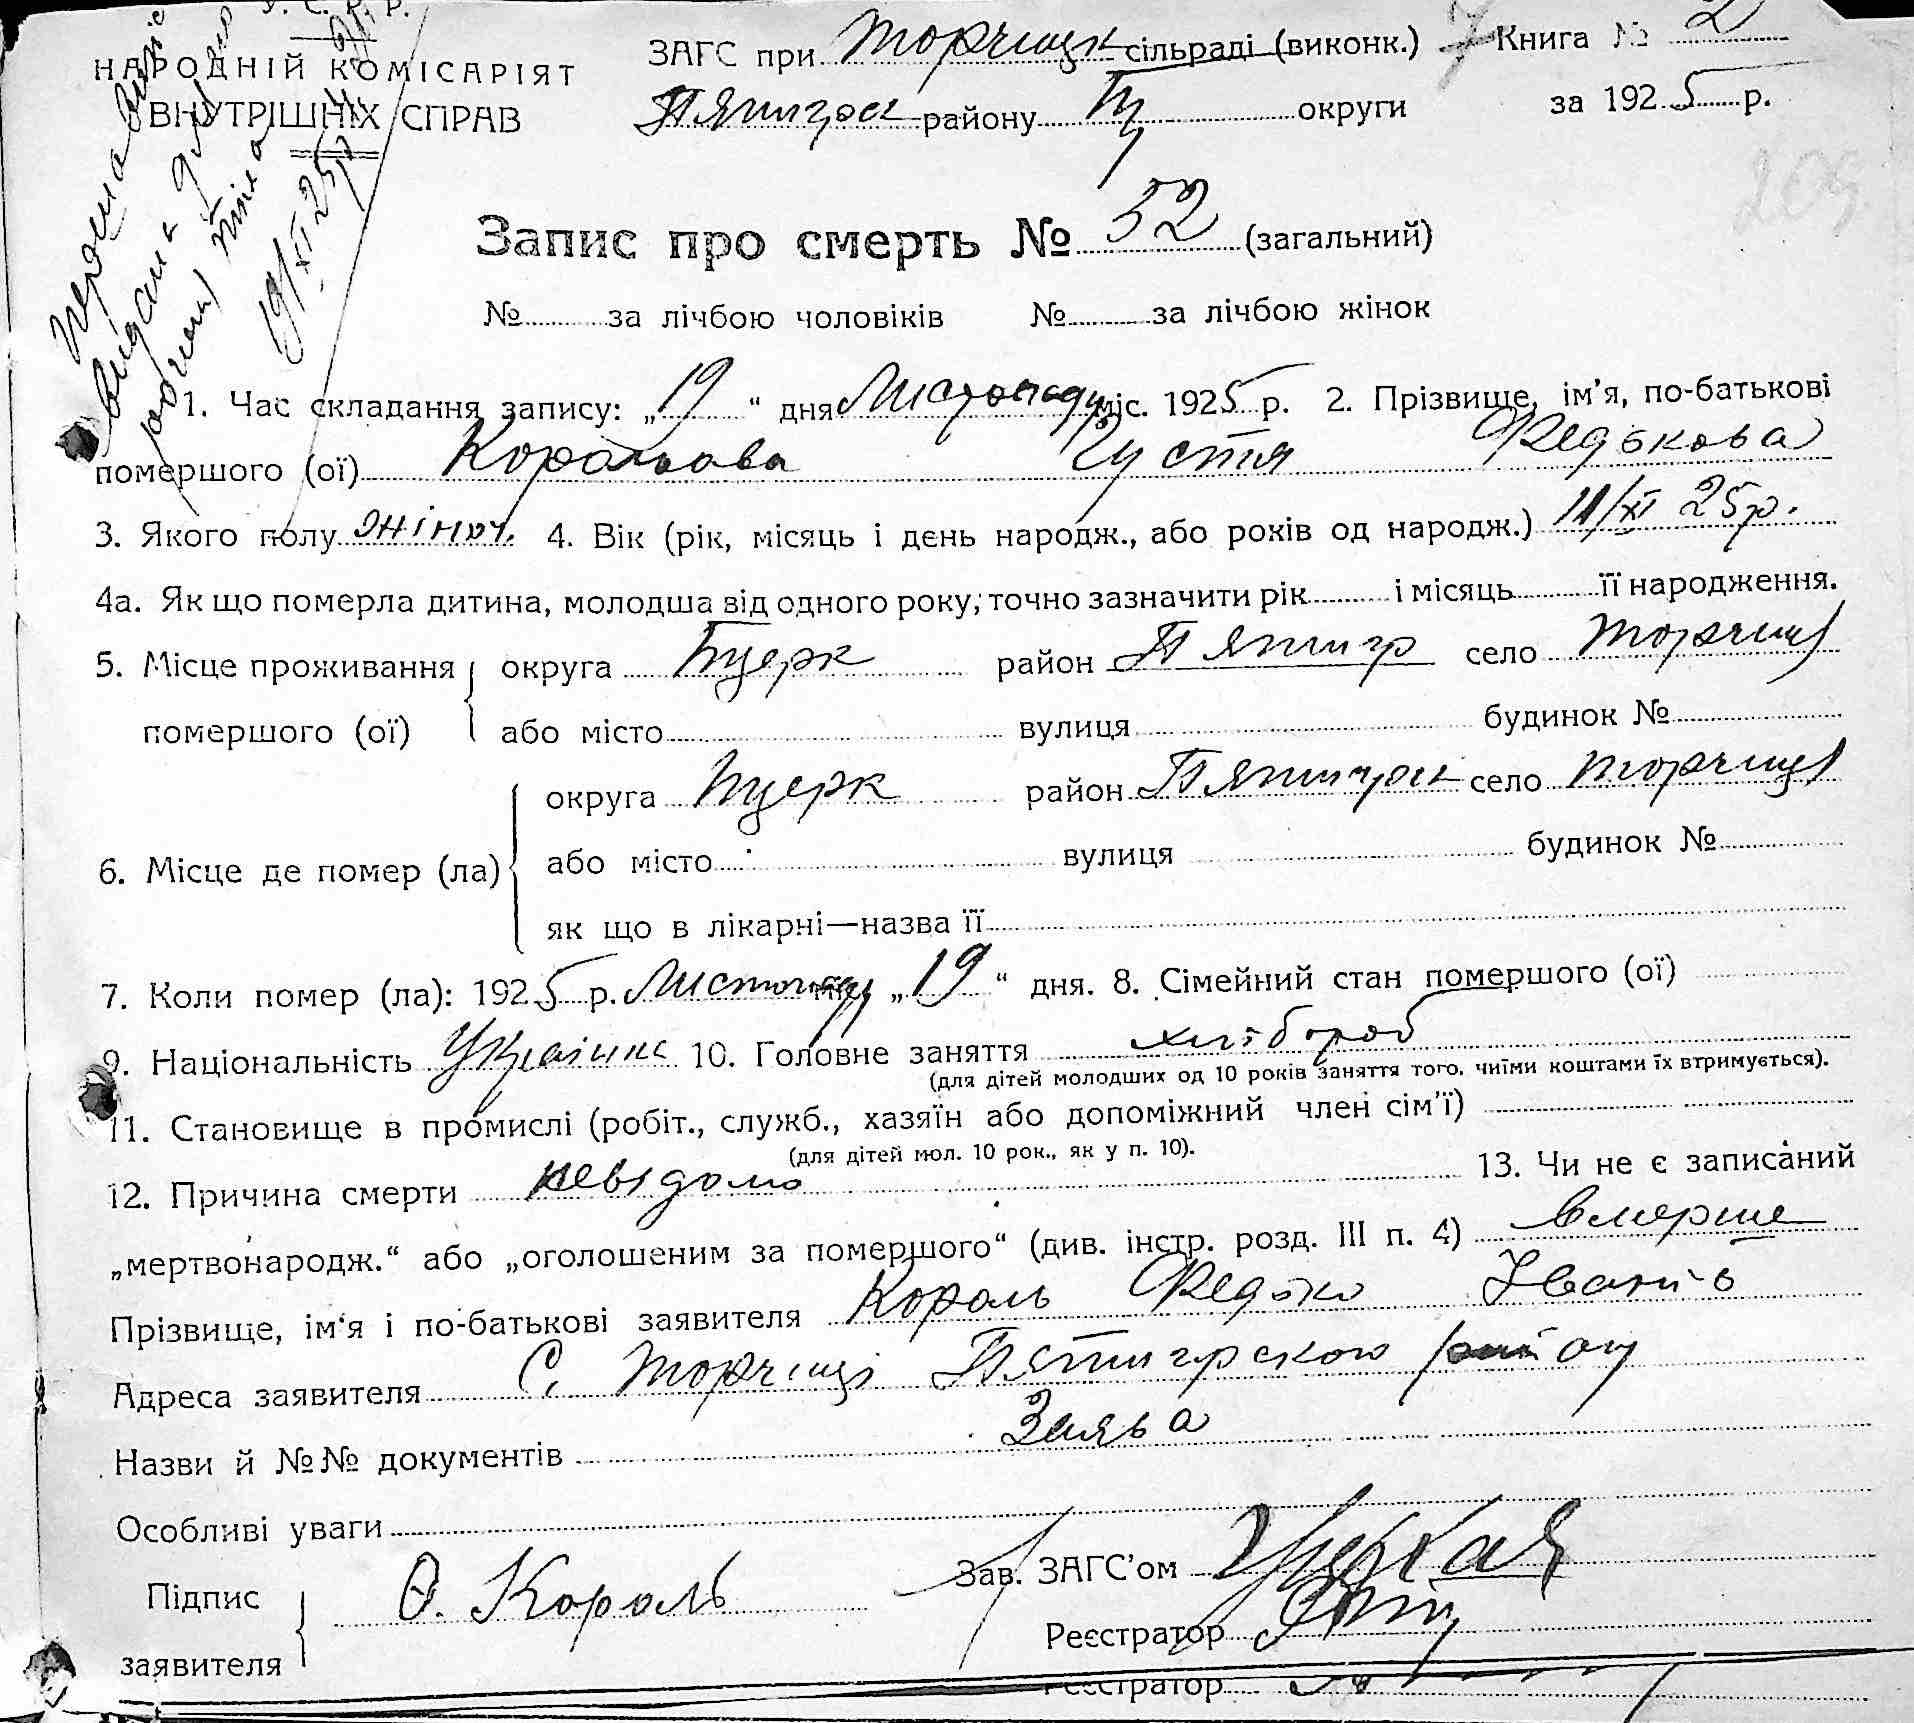 У. С. Р. Р.
НАРОДНІЙ КОМІСАРІЯТ
ВНУТРІШНІХ СПРАВ
ЗАГС при Торчицк сільраді (виконк.) Книга № 2
Пятигорск району Бц округи за 1925 р.
209
19/XI 25р
Запис про смерть № 52 (загальний)
№ за лічбою чоловіків № за лічбою жінок
1. Час складання запису: „19“ дня Листопаду міс. 1925 р. 2. Прізвище, ім'я, по-батькові
помершого (ої) Корольова Устя Федькова
3. Якого полу жіноч. 4. Вік (рік, місяць і день народж., або років од народж.) 11/XI 25р.
4а. Як що померла дитина, молодша від одного року, точно зазначити рік і місяць її народження.
5. Місце проживання помершого (ої) округа Бцерк район Пятигр село Торчиці
або місто вулиця будинок №
6. Місце де помер (ла) округа Бцерк район Пятигорск село Торчиці
або місто вулиця будинок №
як що в лікарні—назва її
7. Коли помер (ла): 1925 р. Листопаду міс. „19“ дня. 8. Сімейний стан помершого (ої)
9. Національність Українка 10. Головне заняття хлібороб
(для дітей молодших од 10 років заняття того, чиїми коштами їх втримується).
11. Становище в промислі (робіт., служб., хазяїн або допоміжний член сім'ї)
(для дітей мол. 10 рок., як у п. 10).
12. Причина смерти невідомо 13. Чи не є записаний
„мертвонародж.“ або „оголошеним за помершого“ (див. інстр. розд. III п. 4) вмерше
Прізвище, ім'я і по-батькові заявителя Король Федько Іванів
Адреса заявителя С. Торчиці Пятигрского району
Назви й №№ документів Заява
Особливі уваги
Підпис заявителя Ѳ. Король
Зав. ЗАГС'ом
Реєстратор
Реєстратор